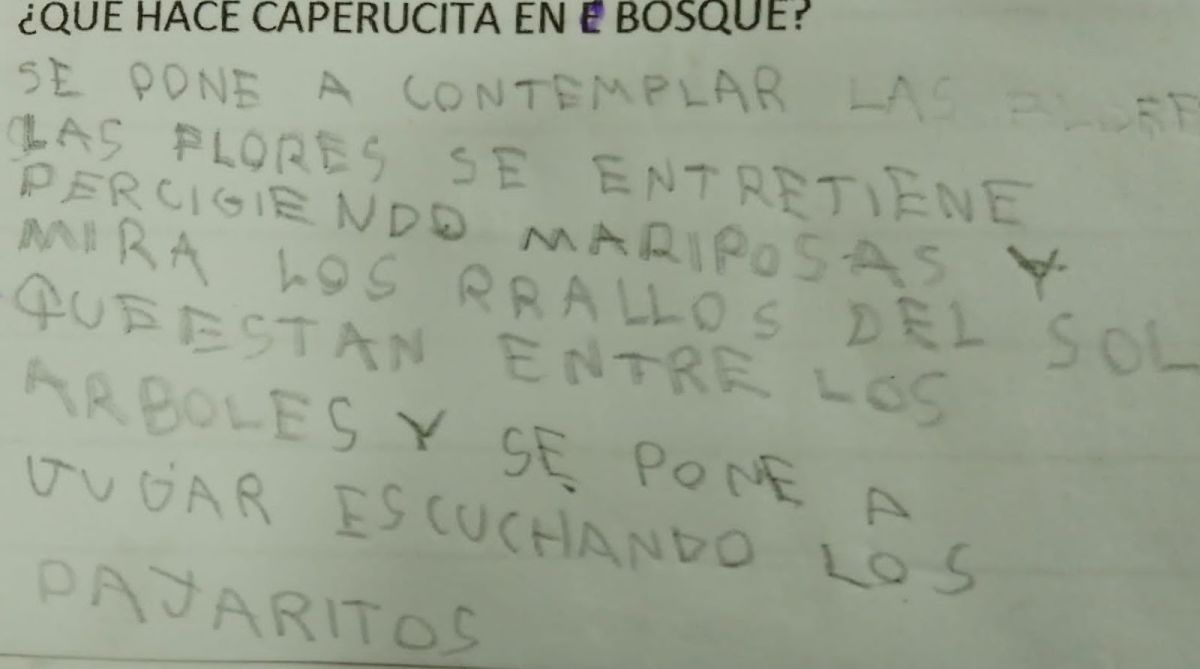 ¿QUE HACE CAPERUCITA EN E BOSQUE?
SE PONE A CONTEMPLAR LAS
LAS FLORES SE ENTRETIENE
PERCIGIENDO MARIPOSAS Y
MIRA LOS RRALLOS DEL SOL
QUE ESTAN ENTRE LOS
ARBOLES Y SE PONE A
JUGAR ESCUCHANDO LOS
PAJARITOS